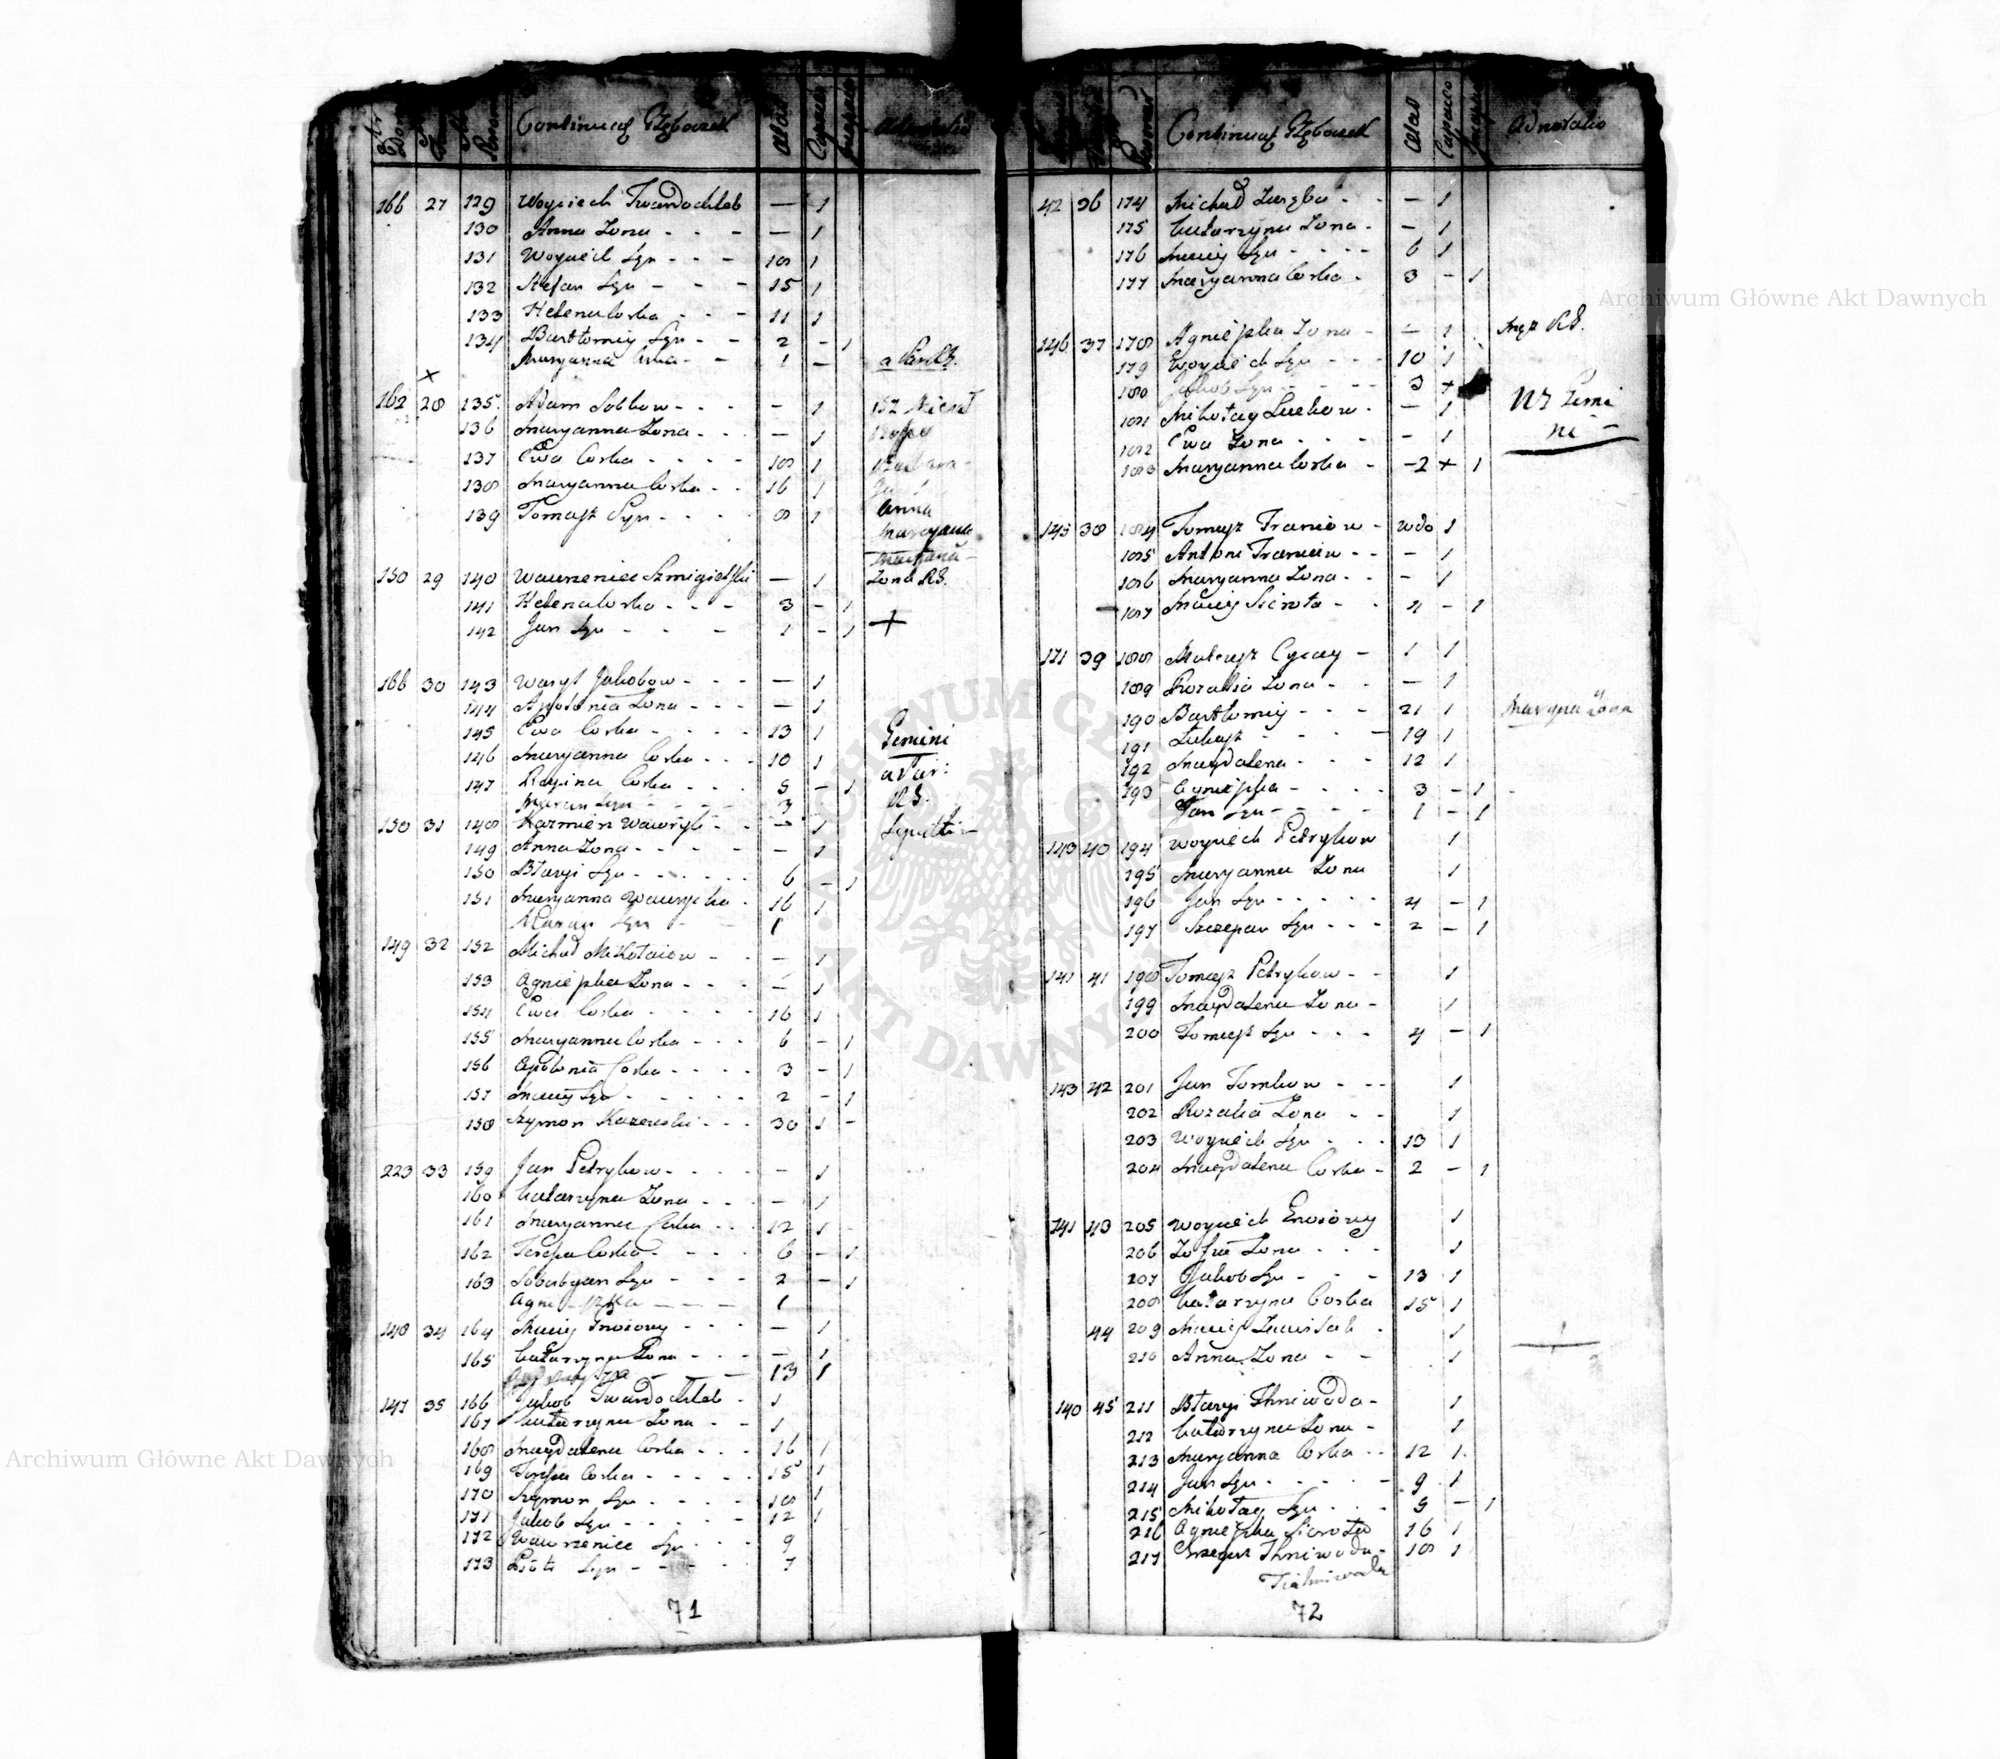 Continuat Rzeboczek Aetas Capaces Incapaces Adnotatio
166 27 129 Woyciech Twardochleb — 1
130 Anna Zona - - - — 1
131 Woyciech Syn - - - 18 1
132 Stefan Syn - - - 15 1
133 Helena Corka - - - 11 1
134 Bartłomiy Syn - - 2 - 1
Maryanna - - 1 —
162 28 135 Adam Sobkow - - - — 1
136 Maryanna Zona - - - — 1
137 Ewa Corka - - - - 18 1
138 Maryanna Corka - - 16 1
139 Tomasz Syn - - - - 8 1
Anna
Maryanna
150 29 140 Wawrzeniec Szmigielski — 1 Zona RS.
141 Helena Corka - - - 3 - 1
142 Jan Syn - - - 1 - 1 +
166 30 143 Wasyl Jakobow - - - — 1
144 Apolonia Zona - - - — 1
145 Ewa Corka - - - - 13 1 Gemini
146 Maryanna Corka - - - 10 1
147 Regina Corka - - - 5 - 1 RS.
Marcin Syn - - - - 3
150 31 148 Kazmierz Wawryk - - — 1
149 Anna Zona - - - - - — 1
150 Błazy Syn - - - - - - 6 - 1
151 Maryanna Wawrycka - 16 1
Syn - - 1
149 32 152 Michał Mikołaiow - - — 1
153 Agnieszka Zona - - - — 1
154 Ewa Corka - - - - - 16 1
155 Maryanna Corka - - - 6 - 1
156 Apolonia Corka - - - - 3 - 1
157 Maciey Syn - - - - - 2 - 1
158 Szymon Kazewski - - - 30 1 -
223 33 159 Jan Petrykow - - - - — 1
160 Katarzyna Zona - - - — 1
161 Maryanna Corka - - - 12 1
162 Teresa Corka - - - - 6 - 1
163 Sobestyan Syn - - - 2 - 1
Agnieszka - - - 1
148 34 164 Maciey Gnoiowy - - - — 1
165 Katarzyna Zona - - - — 1
13 1
147 35 166 Jakob Twardochleb - 1
167 Katarzyna Zona - - 1
168 Magdalena Corka - - - 16 1
169 Teresa Corka - - - - - 15 1
170 Szymon Syn - - - - 18 1
171 Jakob Syn - - - - - 12 1
172 Wawrzeniec Syn - - - 9
173 Piotr Syn - - - - 7
71
Continuat Rzeboczek Aetas Capaces Incapaces Adnotatio
42 36 174 Michał Zaręba - - — 1
175 Katarzyna Zona - — 1
176 Maciey Syn - - - - 6 1
177 Maryanna Corka - 3 - 1
146 37 178 Agnieszka Zona - — 1 Mąz RS.
179 Woyciech Syn - - - 10 1
180 Jakob Syn - - - - 3 +
181 Mikołay Luckow - — 1 NB Gemi
182 Ewa Zona - - - - — 1 ni —
183 Maryanna Corka - -2 + 1
145 38 184 Tomasz Franiow - wdo 1
185 Antoni Franiow - - — 1
186 Maryanna Zona - - — 1
187 Maciey Sierota - - 4 - 1
171 39 188 Mateusz Cycay - 1 1
189 Rozalia Zona - - — 1
190 Bartłomiy - - - 21 1 Maryna Zona
191 Łukasz - - - - 19 1
192 Magdalena - - - 12 1
193 Agnieszka - - - - 3 - 1
Jan Syn - - - - - 1 - 1
143 40 194 Woyciech Petrykow 1
195 Maryanna Zona 1
196 Jan Syn - - - - - 4 - 1
197 Szczepan Syn - - - 2 - 1
141 41 198 Tomasz Petrykow - - 1
199 Magdalena Zona - 1
200 Tomasz Syn - - - 4 - 1
143 42 201 Jan Tomkow - - - 1
202 Rozalia Zona - - 1
203 Woyciech Syn - - - 13 1
204 Magdalena Corka - 2 - 1
141 43 205 Woyciech Gnoiowy 1
206 Zofia Zona - - - 1
207 Jakob Syn - - - 13 1
208 Katarzyna Corka 15 1
44 209 Maciey - 1
210 Anna Zona - - 1
140 45 211 Błazy Tchniwoda - 1
212 Katarzyna Zona - 1
213 Maryanna Corka - - 12 1
214 Jan Syn - - - - - 9 1
215 Mikołay Syn - - - 5 - 1
216 Agnieszka Sierota 16 1
217 Grzegorz Tchniwoda - 18 1
72
Archiwum Główne Akt Dawnych
Archiwum Główne Akt Dawnych
ARCHIWUM GŁÓWNE AKT DAWNYCH